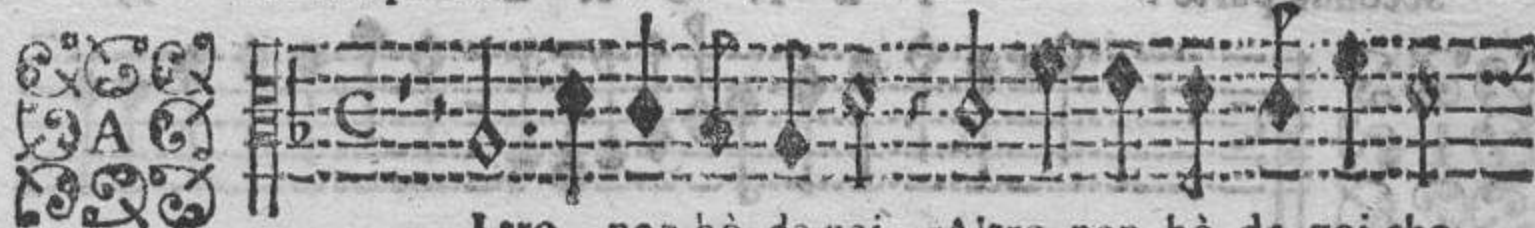 A
ltro non hò da voi Altro non hò da voi che